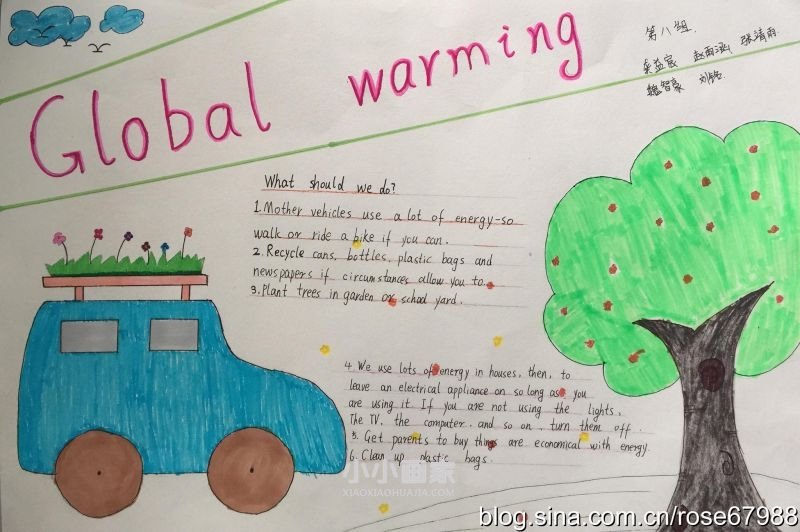 Global warming
第八组
赵雨涵 张靖雨
魏智豪 刘铭
What should we do?
1.Mother vehicles use a lot of energy-so
walk or ride a bike if you can.
2. Recycle cans, bottles, plastic bags and
newspapers if circumstances allow you to.
3.Plant trees in garden or school yard.
4. We use lots of energy in houses, then, to
leave an electrical appliance on so long as you
are using it. If you are not using the lights,
The TV, the computer, and so on, turn them off.
5. Get parents to buy things are economical with energy.
6. Clean up plastic bags.
小小画家
XIAOXIAOHUAJIA.COM
blog.sina.com.cn/rose67988